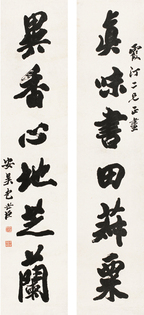 霞汀二兄正
眞味書田菽粟
異香心地芝蘭
安吳包世臣